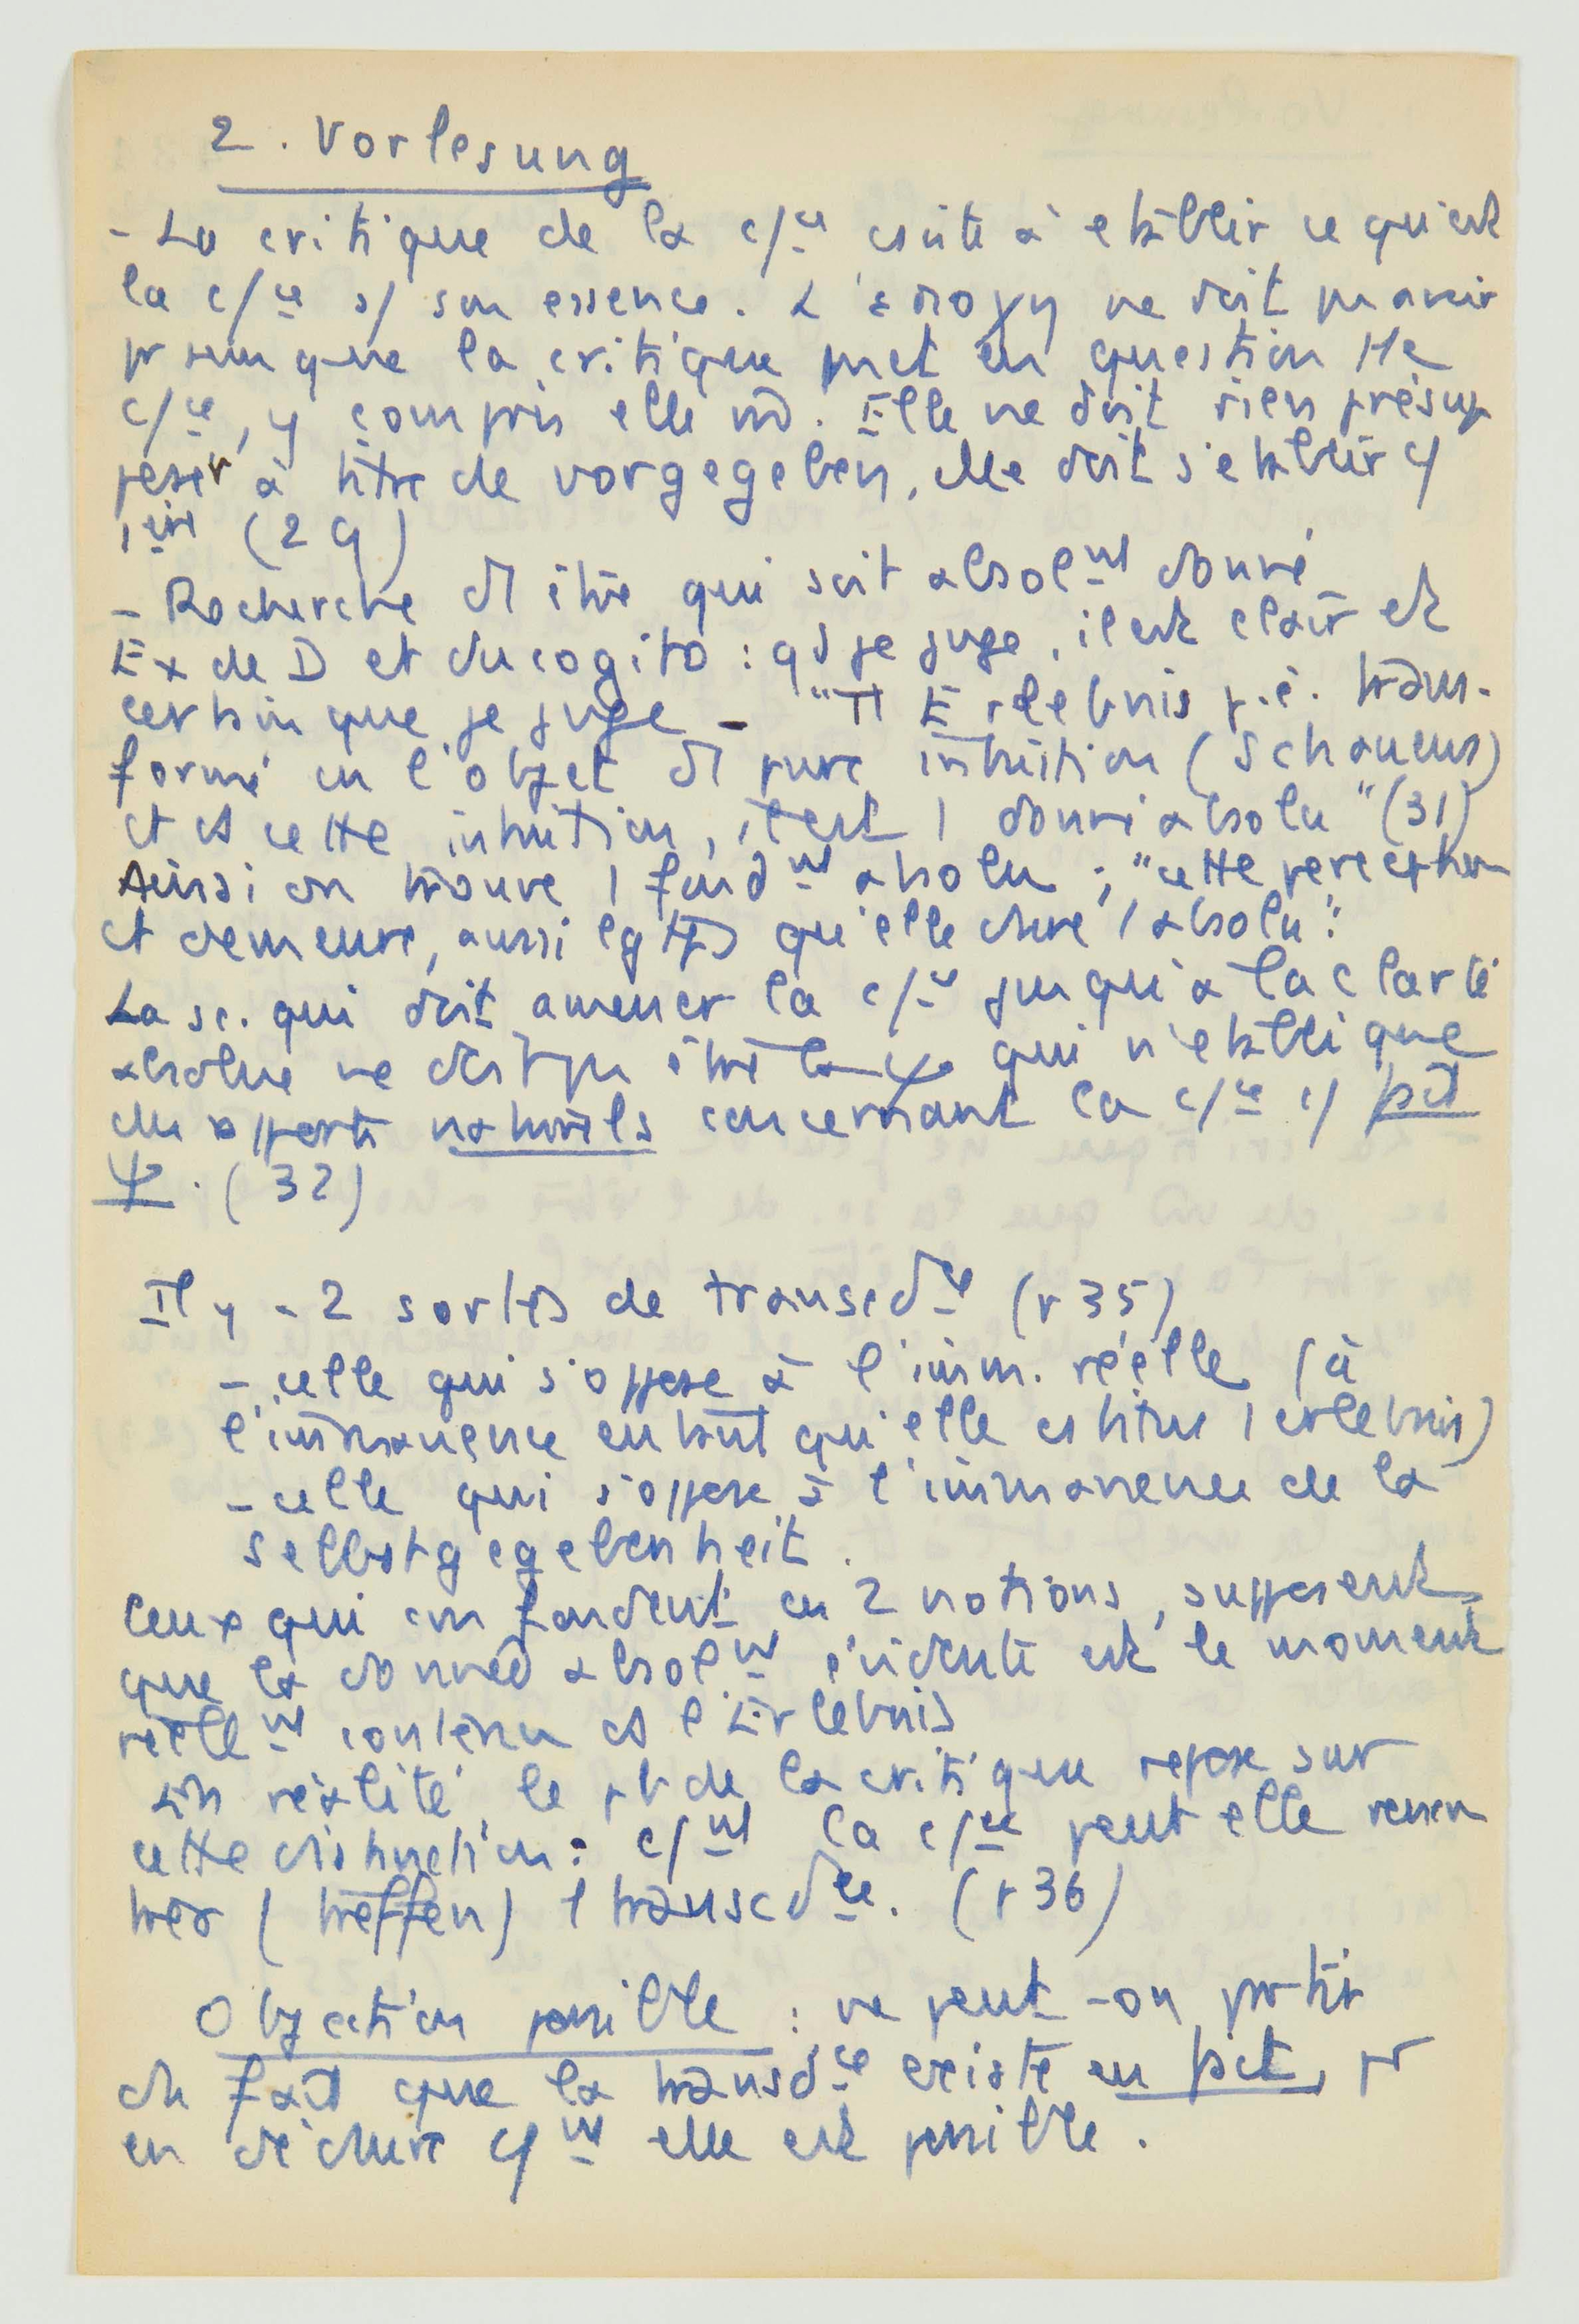 2. Vorlesung
- La critique de la c/ce csiste à etablir ce qu'est
la c/ce ds/ son essence. L'εποχη ne doit pas avoir
pr sens que la critique met en question tte
c/ce, y compris elle m̂. Elle ne doit rien présup
poser à titre de vorgegeben, elle doit s'etablir c/
1ere (29)
- Recherche d'1 être qui soit absolmt donné
Ex de D et du cogito : qd je juge, il est clair et
certain que je juge - "Tt Erlebnis p.ê. trans-
formé en l'objet d'1 pure intuition (Schauens)
et ds cette intuition, il est 1 donné absolu" (31)
Ainsi on trouve 1 fondmt absolu ; "cette perception
et demeure, aussi lgtps qu'elle dure 1 absolu".
La sc. qui doit amener la c/ce jusqu'à la clarté
absolue ne doit pas être la ψo qui n'etablit que
des rapports naturels concernant la c/ce c/ fait
ψ. (32)
Il y a 2 sortes de transcdce (v 35)
- celle qui s'oppose à l'imm. réelle (à
l'immanence en tant qu'elle cstitue 1 erlebnis)
- celle qui s'oppose à l'immanence de la
Selbstgegebenheit.
Ceux qui confondent ces 2 notions, supposent
que la donnée absolmt évidente est le moment
réellemt contenu ds l'Erlebnis
En réalité, le pb de la critique repose sur
cette distinction : c/mt la c/ce peut elle rencon
trer (treffen) 1 transcdce. (v 36)
Objection possible : ne peut-on partir
du fait que la transdce existe en fait, pr
en déduire c/mt elle est possible.